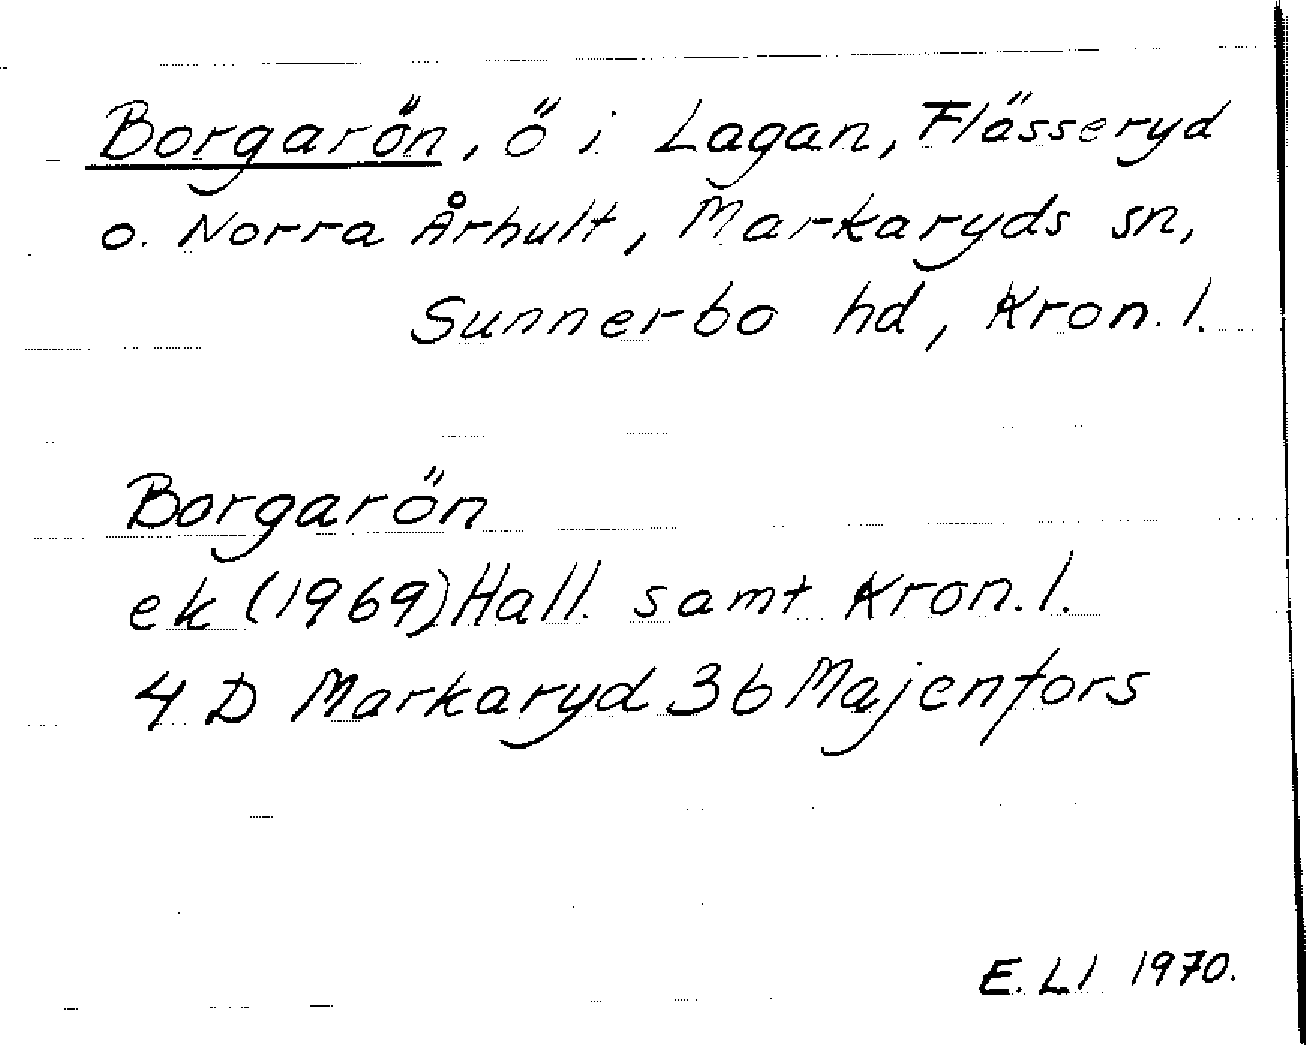 Borgarön, ö i Lagan, Flässeryd
o. Norra Århult, Markaryds sn,
Sunnerbo hd, Kron. l.
Borgarön
ek (1969) Hall. samt Kron. l.
4 D Markaryd 3b Majenfors
E. Ll 1970.